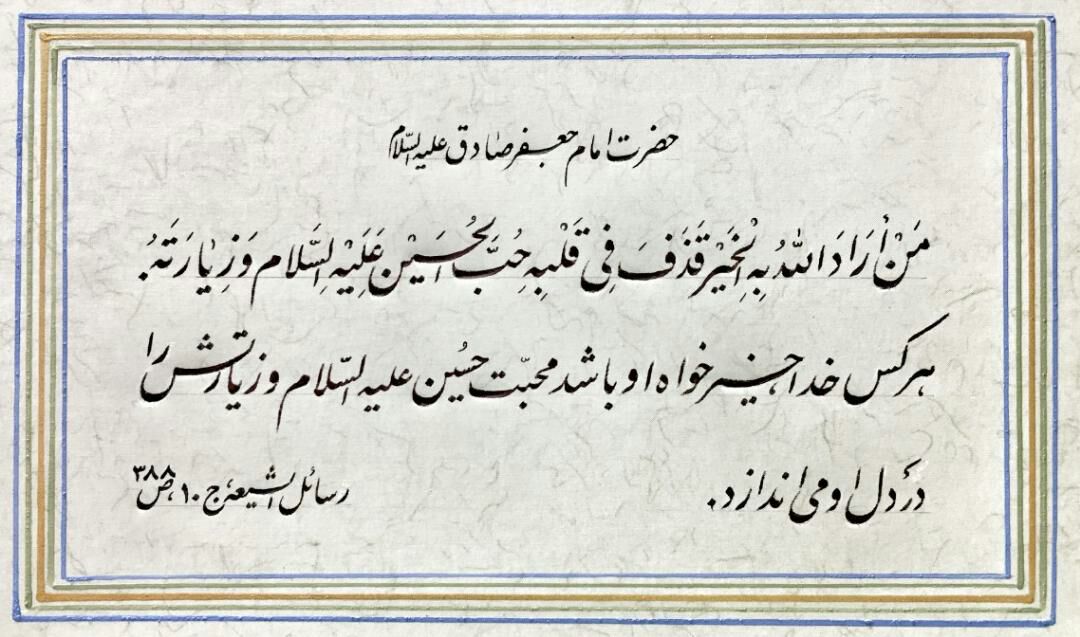 حضرت امام جعفر صادق علیه السّلام
مَنْ أَرَادَ اللّٰهُ بِهِ الْخَيْرَ قَذَفَ فِي قَلْبِهِ حُبَّ الْحُسَيْنِ عَلَيْهِ السَّلام وَزِيَارَتَهُ.
هر کس خدا خیرخواه او باشد محبّت حُسین علیه السّلام و زیارتش را
در دل او می‌اندازد.
رسائل الشیعه، ج ۱۰، ص ۳۸۸